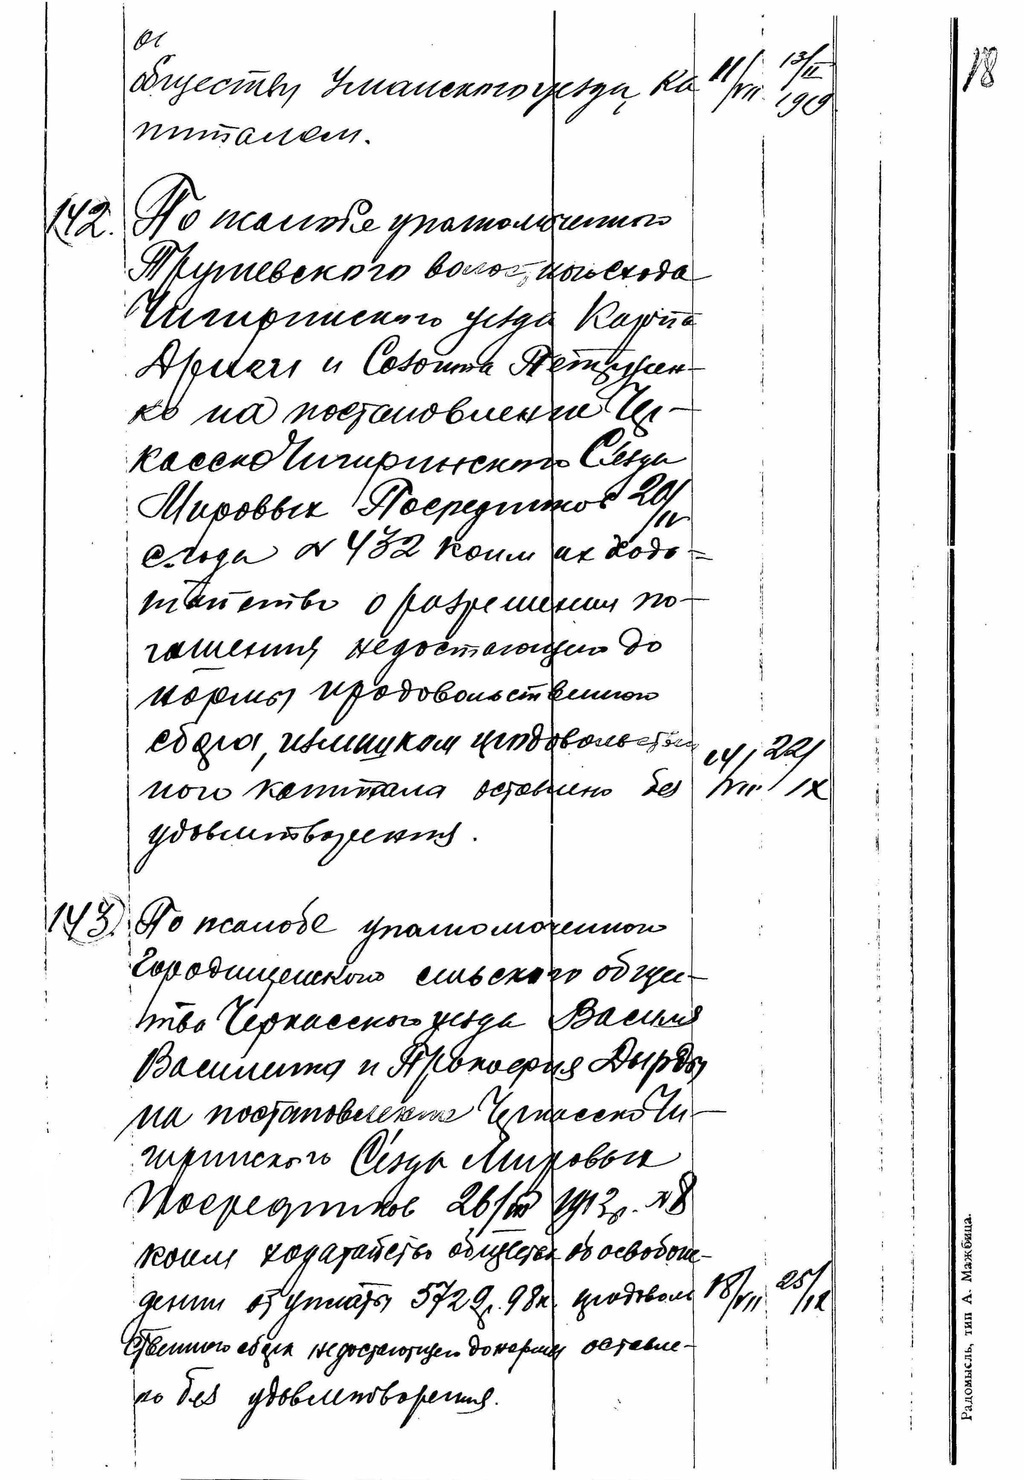 18
обществу Уманского уезда ка
питалам.
11/VII 13/II 1919
142. По жалобе уполномоченного
Трушевского волостного схода
Чигиринского уезда Карпа
и Созонта Петрушен-
ко на постановление Чер-
касско Чигиринского Съезда
Мировых Посредников 20/IV
с.года № 432 коим их хода-
тайство о разрешении по-
гашения недостающего до
нормы продовольственного
сбора, излишком продовольствен
ного капитала оставлено без
14/VII 22/IX
удовлетворения.
143. По жалобе уполномоченного
Городищенского сельского обще-
ства Черкасского уезда Василия
Василенка и Прокофия Дырды
на постановление Черкасско Чи-
гиринского Съезда Мировых
Посредников 26/III 1913г. № 8
коим ходатайство общества об освобож-
дении от уплаты 5729р. 98к. продоволь
18/VII 25/IX
ственного сбора недостающего до нормы оставле-
но без удовлетворения.
Радомысль, тип А. Мажбица.